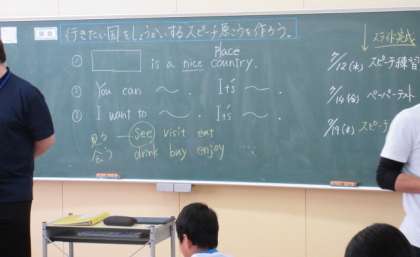 行きたい国をしょうかいするスピーチ原こうを作ろう。
Place
① is a nice country.
② You can 〜. It's 〜.
③ I want to 〜. It's 〜.
見る
会う
See visit eat
drink buy enjoy ...
スライド完成
7/12(水) スピーチ練習
7/14(金) ペーパーテスト
7/19(水) スピーチ